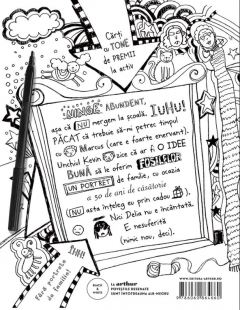 Cărți
cu TONE
de
PREMII
la activ
NINGE ABUNDENT,
așa că NU mergem la școală. IUHU!
PĂCAT că trebuie să-mi petrec timpul
cu Marcus (care e foarte enervant).
Unchiul Kevin zice că ar fi O IDEE
BUNĂ să le oferim FOSILELOR
UN PORTRET de familie, cu ocazia
a 50 de ani de căsătorie
(NU asta înțeleg eu prin cadou).
Nici Delia nu e încântată.
E nesuferită
(nimic nou, deci).
Fără portrete
de familie!
BLACK
&
WHITE
La arthur
POVEȘTILE DESENATE
SUNT ÎNTOTDEAUNA ALB-NEGRU
WWW.EDITURA-ARTHUR.RO